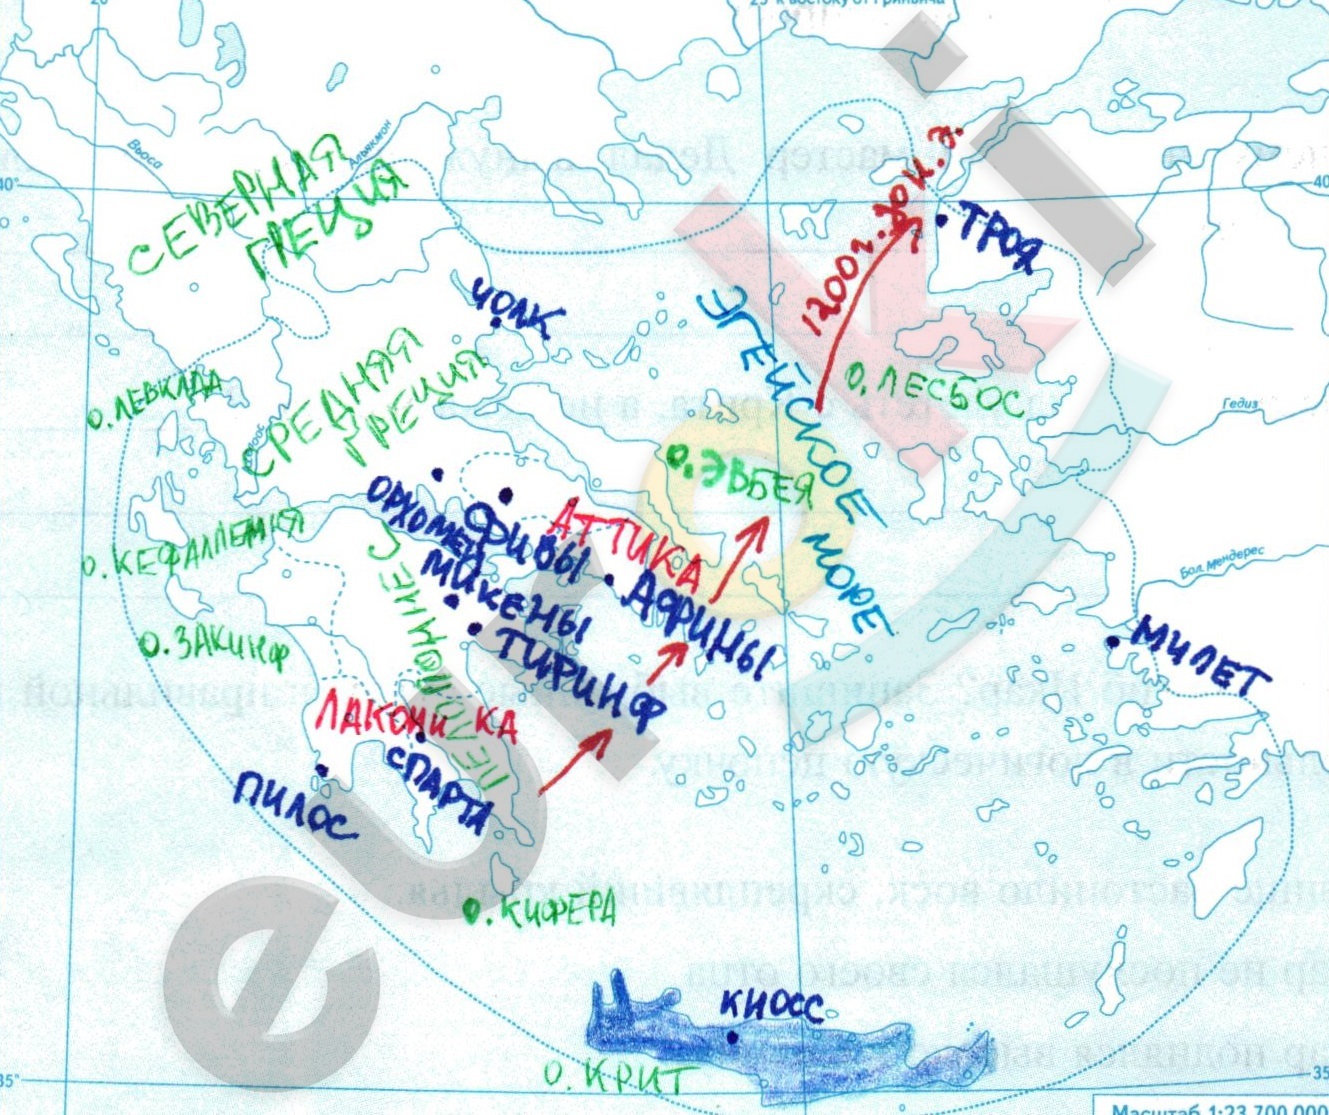 20°
25° к востоку от Гринвича
Вьоса
Альякмон
40°
40
СЕВЕРНАЯ
ГРЕЦИЯ
1200г. до н.э.
ТРОЯ
ЧОЛК
ЭГЕЙСКОЕ
МОРЕ
о.ЛЕВКАДА
СРЕДНЯЯ
ГРЕЦИЯ
о.ЛЕСБОС
Гедиз
о.ЭВБЕЯ
ОРХОМЕН
ФИВЫ
АТТИКА
о.КЕФАЛЛЕНИЯ
МИКЕНЫ
АФИНЫ
Бол. Мендерес
о.ЗАКИНФ
ПЕЛОПОННЕС
ТИРИНФ
МИЛЕТ
ЛАКОНИКА
СПАРТА
ПИЛОС
о.КИФЕРА
КНОСС
о.КРИТ
35°
35
Масштаб 1:23 700 000
eurоki